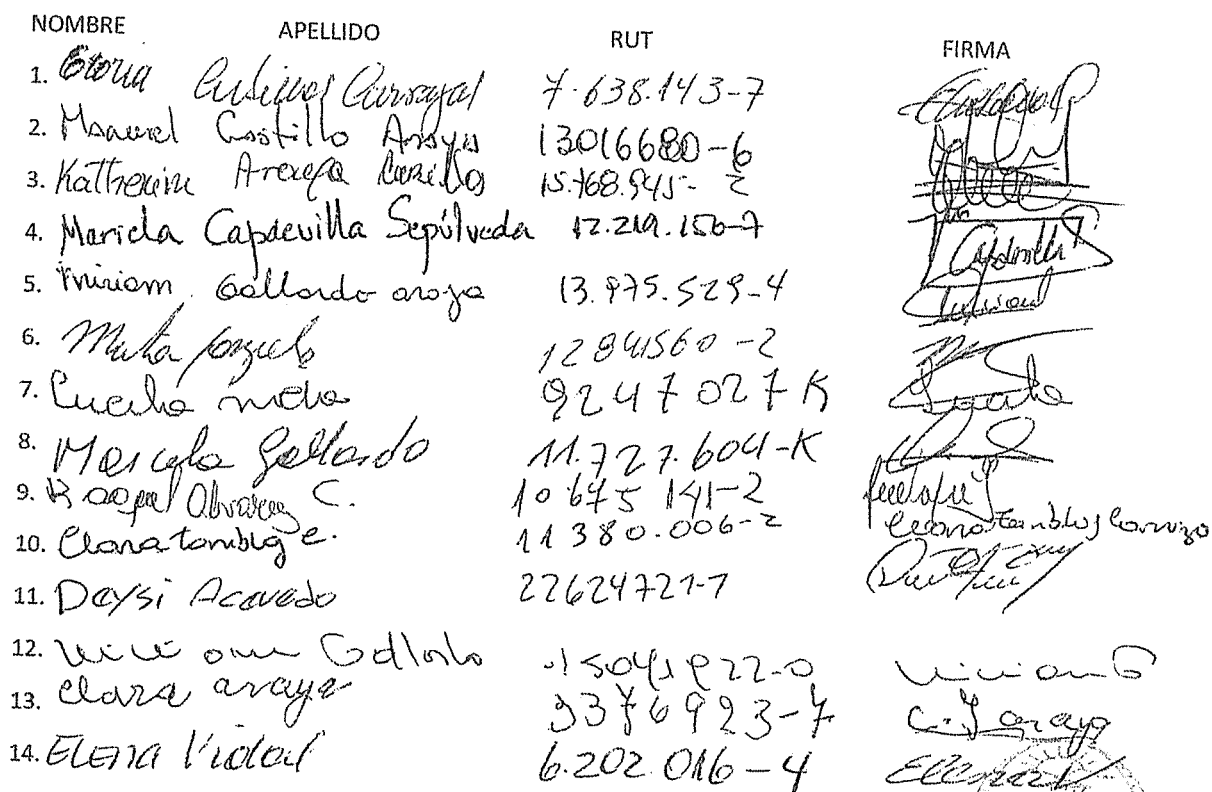 NOMBRE APELLIDO RUT FIRMA
1. Gloria Carvajal 7.638.143-7
2. Manuel Castillo Araya 13016680-6
3. Katherine 15.768.945-2
4. Mariela Capdevilla Sepúlveda 12.219.156-7 Capdevilla
5. Miriam Gallardo araya 13.975.529-4
6. Mirta 12841560-2
7. Lucila 9247027-K Lucila
8. Marcela Gallardo 11.727.604-K
9. Raquel Alvarez C. 10675141-2
10. Clara tamblay c. 11380.006-2 Clara tamblay Carrizo
11. Deysi Acevedo 22624721-7
12. Viviana Gallardo 15041922-0 Viviana G
13. Clara araya 9376923-7 C. araya
14. ELENA Vidal 6.202.016-4 Elena V